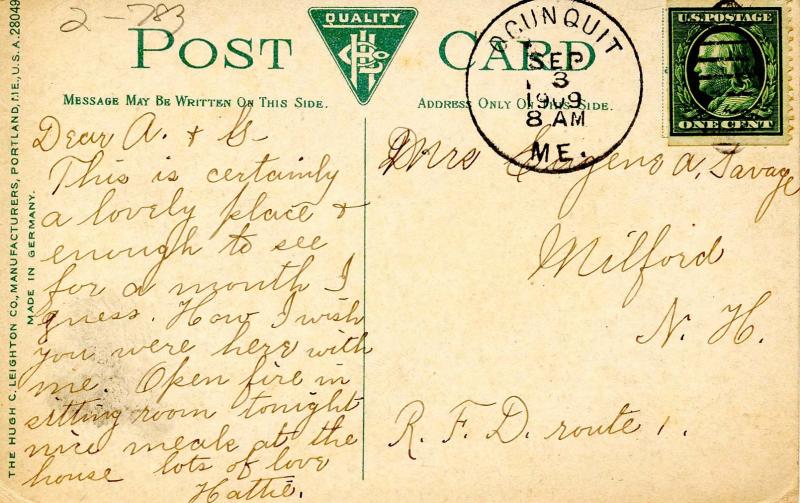 2-783
POST CARD
QUALITY
MESSAGE MAY BE WRITTEN ON THIS SIDE.
ADDRESS ONLY ON THIS SIDE.
OGUNQUIT
SEP
3
1909
8 AM
ME.
U.S. POSTAGE
ONE CENT
THE HUGH C. LEIGHTON CO., MANUFACTURERS, PORTLAND, ME., U.S.A. 28049
MADE IN GERMANY.
Dear A. & G.
This is certainly
a lovely place &
enough to see
for a month I
guess. How I wish
you were here with
me. Open fire in
sitting room tonight
nice meals at the
house lots of love
Hattie.
Mrs Eugene A, Savage
Milford
N. H.
R. F. D. route 1.